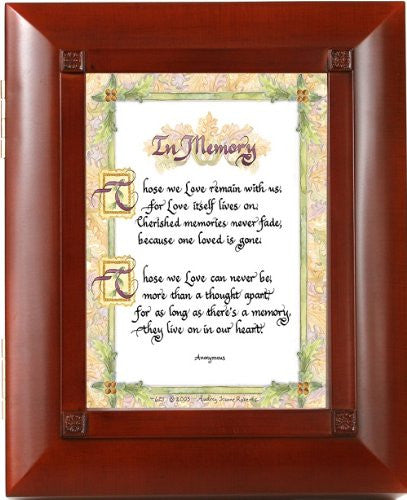 In Memory
Those we Love remain with us;
for Love itself lives on.
Cherished memories never fade;
because one loved is gone.
Those we Love can never be;
more than a thought apart,
for as long as there's a memory,
they live on in our heart.
Anonymous
© 2003 Audrey Jeanne Roberts